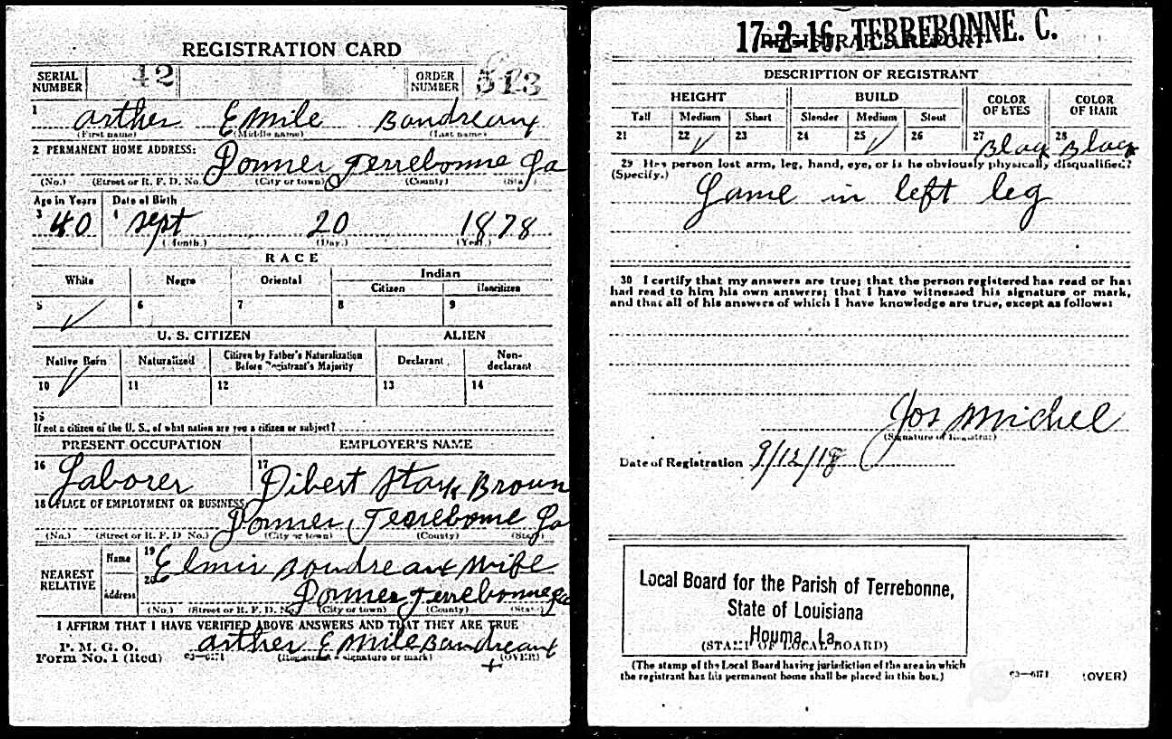 REGISTRATION CARD
SERIAL NUMBER 42 ORDER NUMBER 513
1 Arther Emile Boudreaux
(First name) (Middle name) (Last name)
2 PERMANENT HOME ADDRESS:
Donner Terrebonne La
(No.) (Street or R. F. D. No.) (City or town) (County) (State)
Age in Years Date of Birth
3 40 4 Sept 20 1878
(Month.) (Day.) (Year.)
RACE
White Negro Oriental Indian
Citizen Noncitizen
5 ✓ 6 7 8 9
U. S. CITIZEN ALIEN
Native Born Naturalized Citizen by Father's Naturalization Before Registrant's Majority Declarant Non-declarant
10 ✓ 11 12 13 14
15
If not a citizen of the U. S., of what nation are you a citizen or subject?
PRESENT OCCUPATION EMPLOYER'S NAME
16 Laborer 17 Dibert Stark Brown
18 PLACE OF EMPLOYMENT OR BUSINESS
Donner Terrebonne La
(No.) (Street or R. F. D. No.) (City or town) (County) (State)
NEAREST RELATIVE Name 19 Elmir Boudreaux Wife
Address 20 Donner Terrebonne La
(No.) (Street or R. F. D. No.) (City or town) (County) (State)
I AFFIRM THAT I HAVE VERIFIED ABOVE ANSWERS AND THAT THEY ARE TRUE
P. M. G. O.
Form No. 1 (Red) 03-6171 Arther Emile Boudreaux
(Registrant's signature or mark) (OVER)
17-2-16 TERREBONNE. C.
REGISTRAR'S REPORT
DESCRIPTION OF REGISTRANT
HEIGHT BUILD COLOR OF EYES COLOR OF HAIR
Tall Medium Short Slender Medium Stout
21 22 ✓ 23 24 25 ✓ 26 27 Black 28 Black
29 Has person lost arm, leg, hand, eye, or is he obviously physically disqualified?
(Specify.)
Lame in left leg
30 I certify that my answers are true; that the person registered has read or has
had read to him his own answers; that I have witnessed his signature or mark,
and that all of his answers of which I have knowledge are true, except as follows:
Jos Michel
(Signature of Registrar)
Date of Registration 9/12/18
Local Board for the Parish of Terrebonne,
State of Louisiana
Houma, La.
(STAMP OF LOCAL BOARD)
(The stamp of the Local Board having jurisdiction of the area in which
the registrant has his permanent home shall be placed in this box.)
03-6171 (OVER)